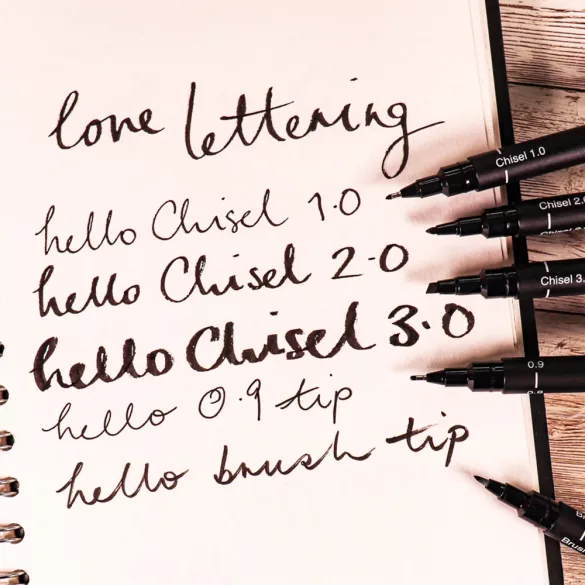 love lettering
hello Chisel 1.0
hello Chisel 2.0
hello Chisel 3.0
hello 0.9 tip
hello brush tip
Chisel 1.0
Chisel 2.0
Chisel 3.
0.9
Brush